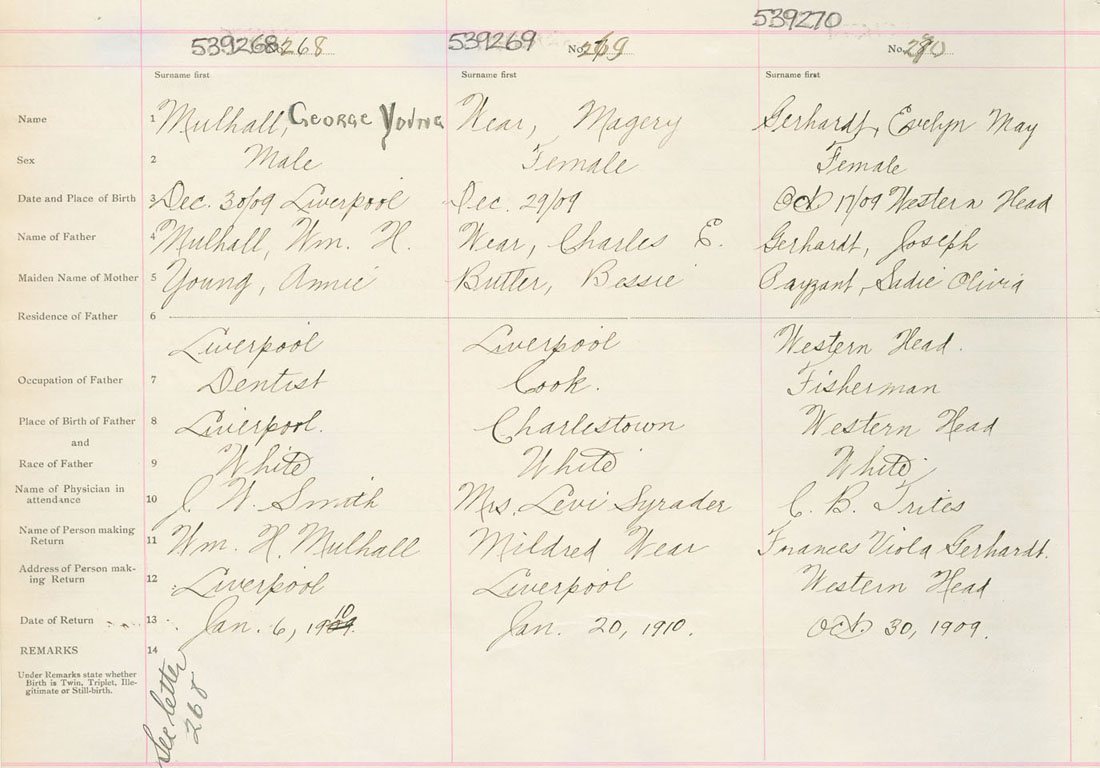 539270
539268 268 539269 No. 269 No. 270
Surname first Surname first Surname first
Name 1 Mulhall, George Young Wear, Magery Gerhardt, Evelyn May
Sex 2 Male Female Female
Date and Place of Birth 3 Dec. 30/09 Liverpool Dec. 29/09 Oct 17/09 Western Head
Name of Father 4 Mulhall, Wm. H. Wear, Charles E. Gerhardt, Joseph
Maiden Name of Mother 5 Young, Annie Butler, Bessie Payzant, Sadie Olivia
Residence of Father 6
Liverpool Liverpool Western Head.
Occupation of Father 7 Dentist Cook. Fisherman
Place of Birth of Father 8 Liverpool. Charlestown Western Head
and
Race of Father 9 White White White
Name of Physician in
attendance 10 J. W. Smith Mrs. Levi Syrader C. B. Trites
Name of Person making
Return 11 Wm. H. Mulhall Mildred Wear Frances Viola Gerhardt.
Address of Person mak-
ing Return 12 Liverpool Liverpool Western Head
Date of Return 13 Jan. 6, 1910 Jan. 20, 1910. Oct. 30, 1909.
REMARKS 14
Under Remarks state whether
Birth is Twin, Triplet, Ille-
gitimate or Still-birth.
See letter
268